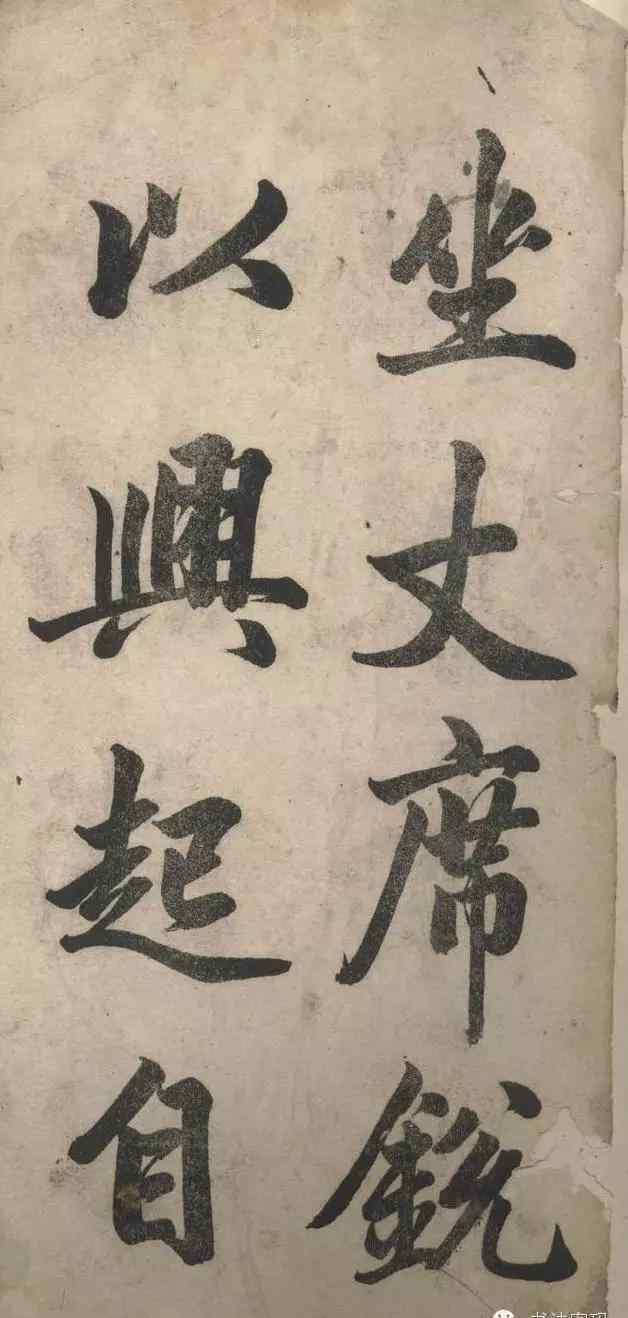 坐丈席銳
以興起自